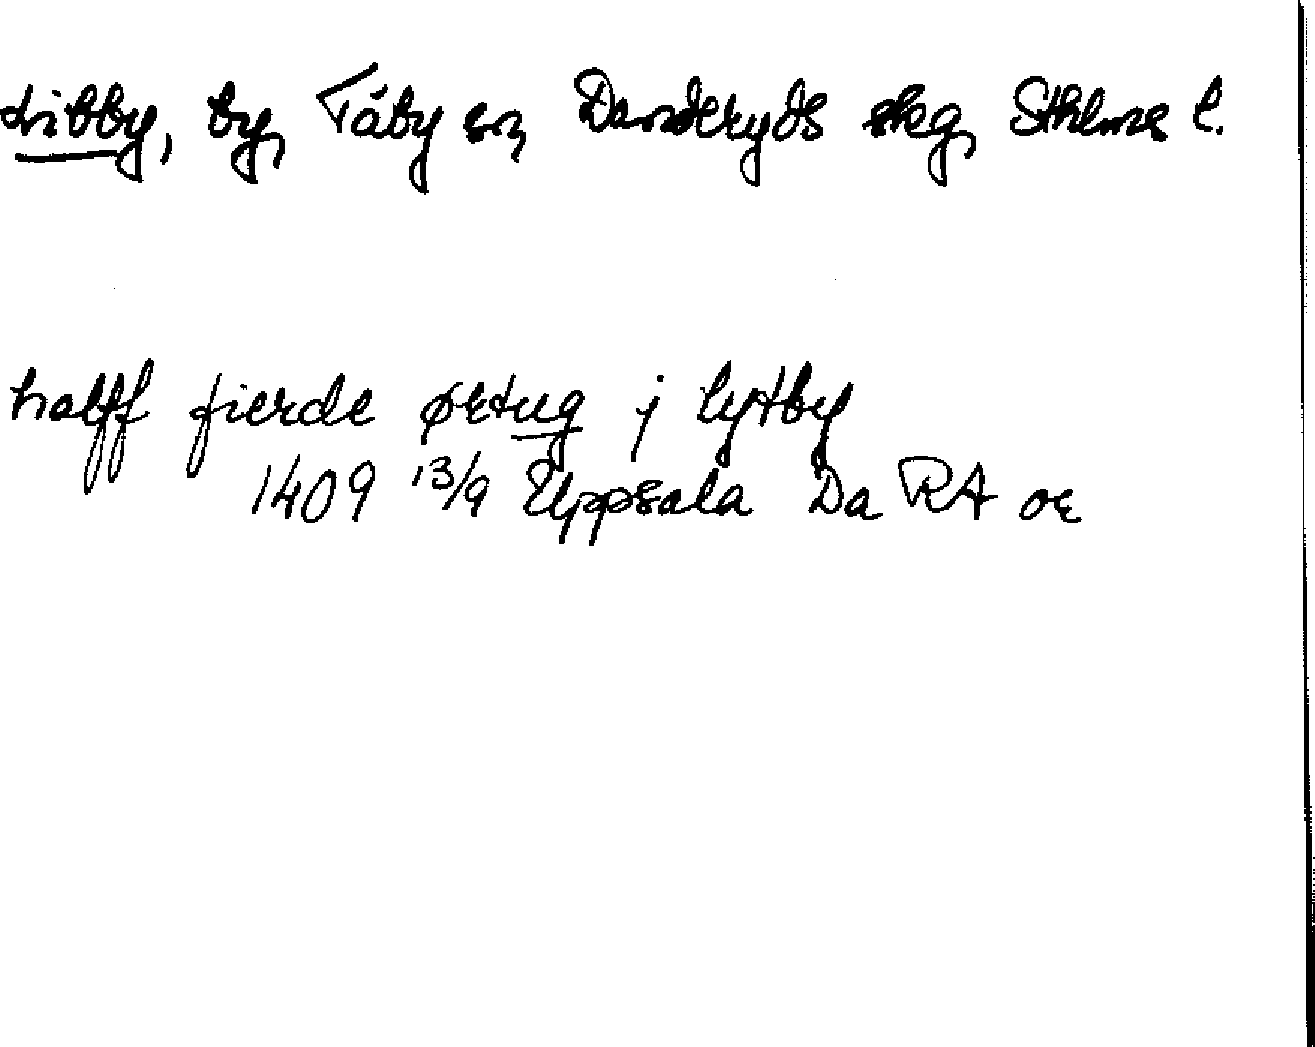 Libby, by, Täby sn, Danderyds skg, Sthlms l.
halff fierde ørtug j lytby
1409 13/9 Uppsala Da RA or